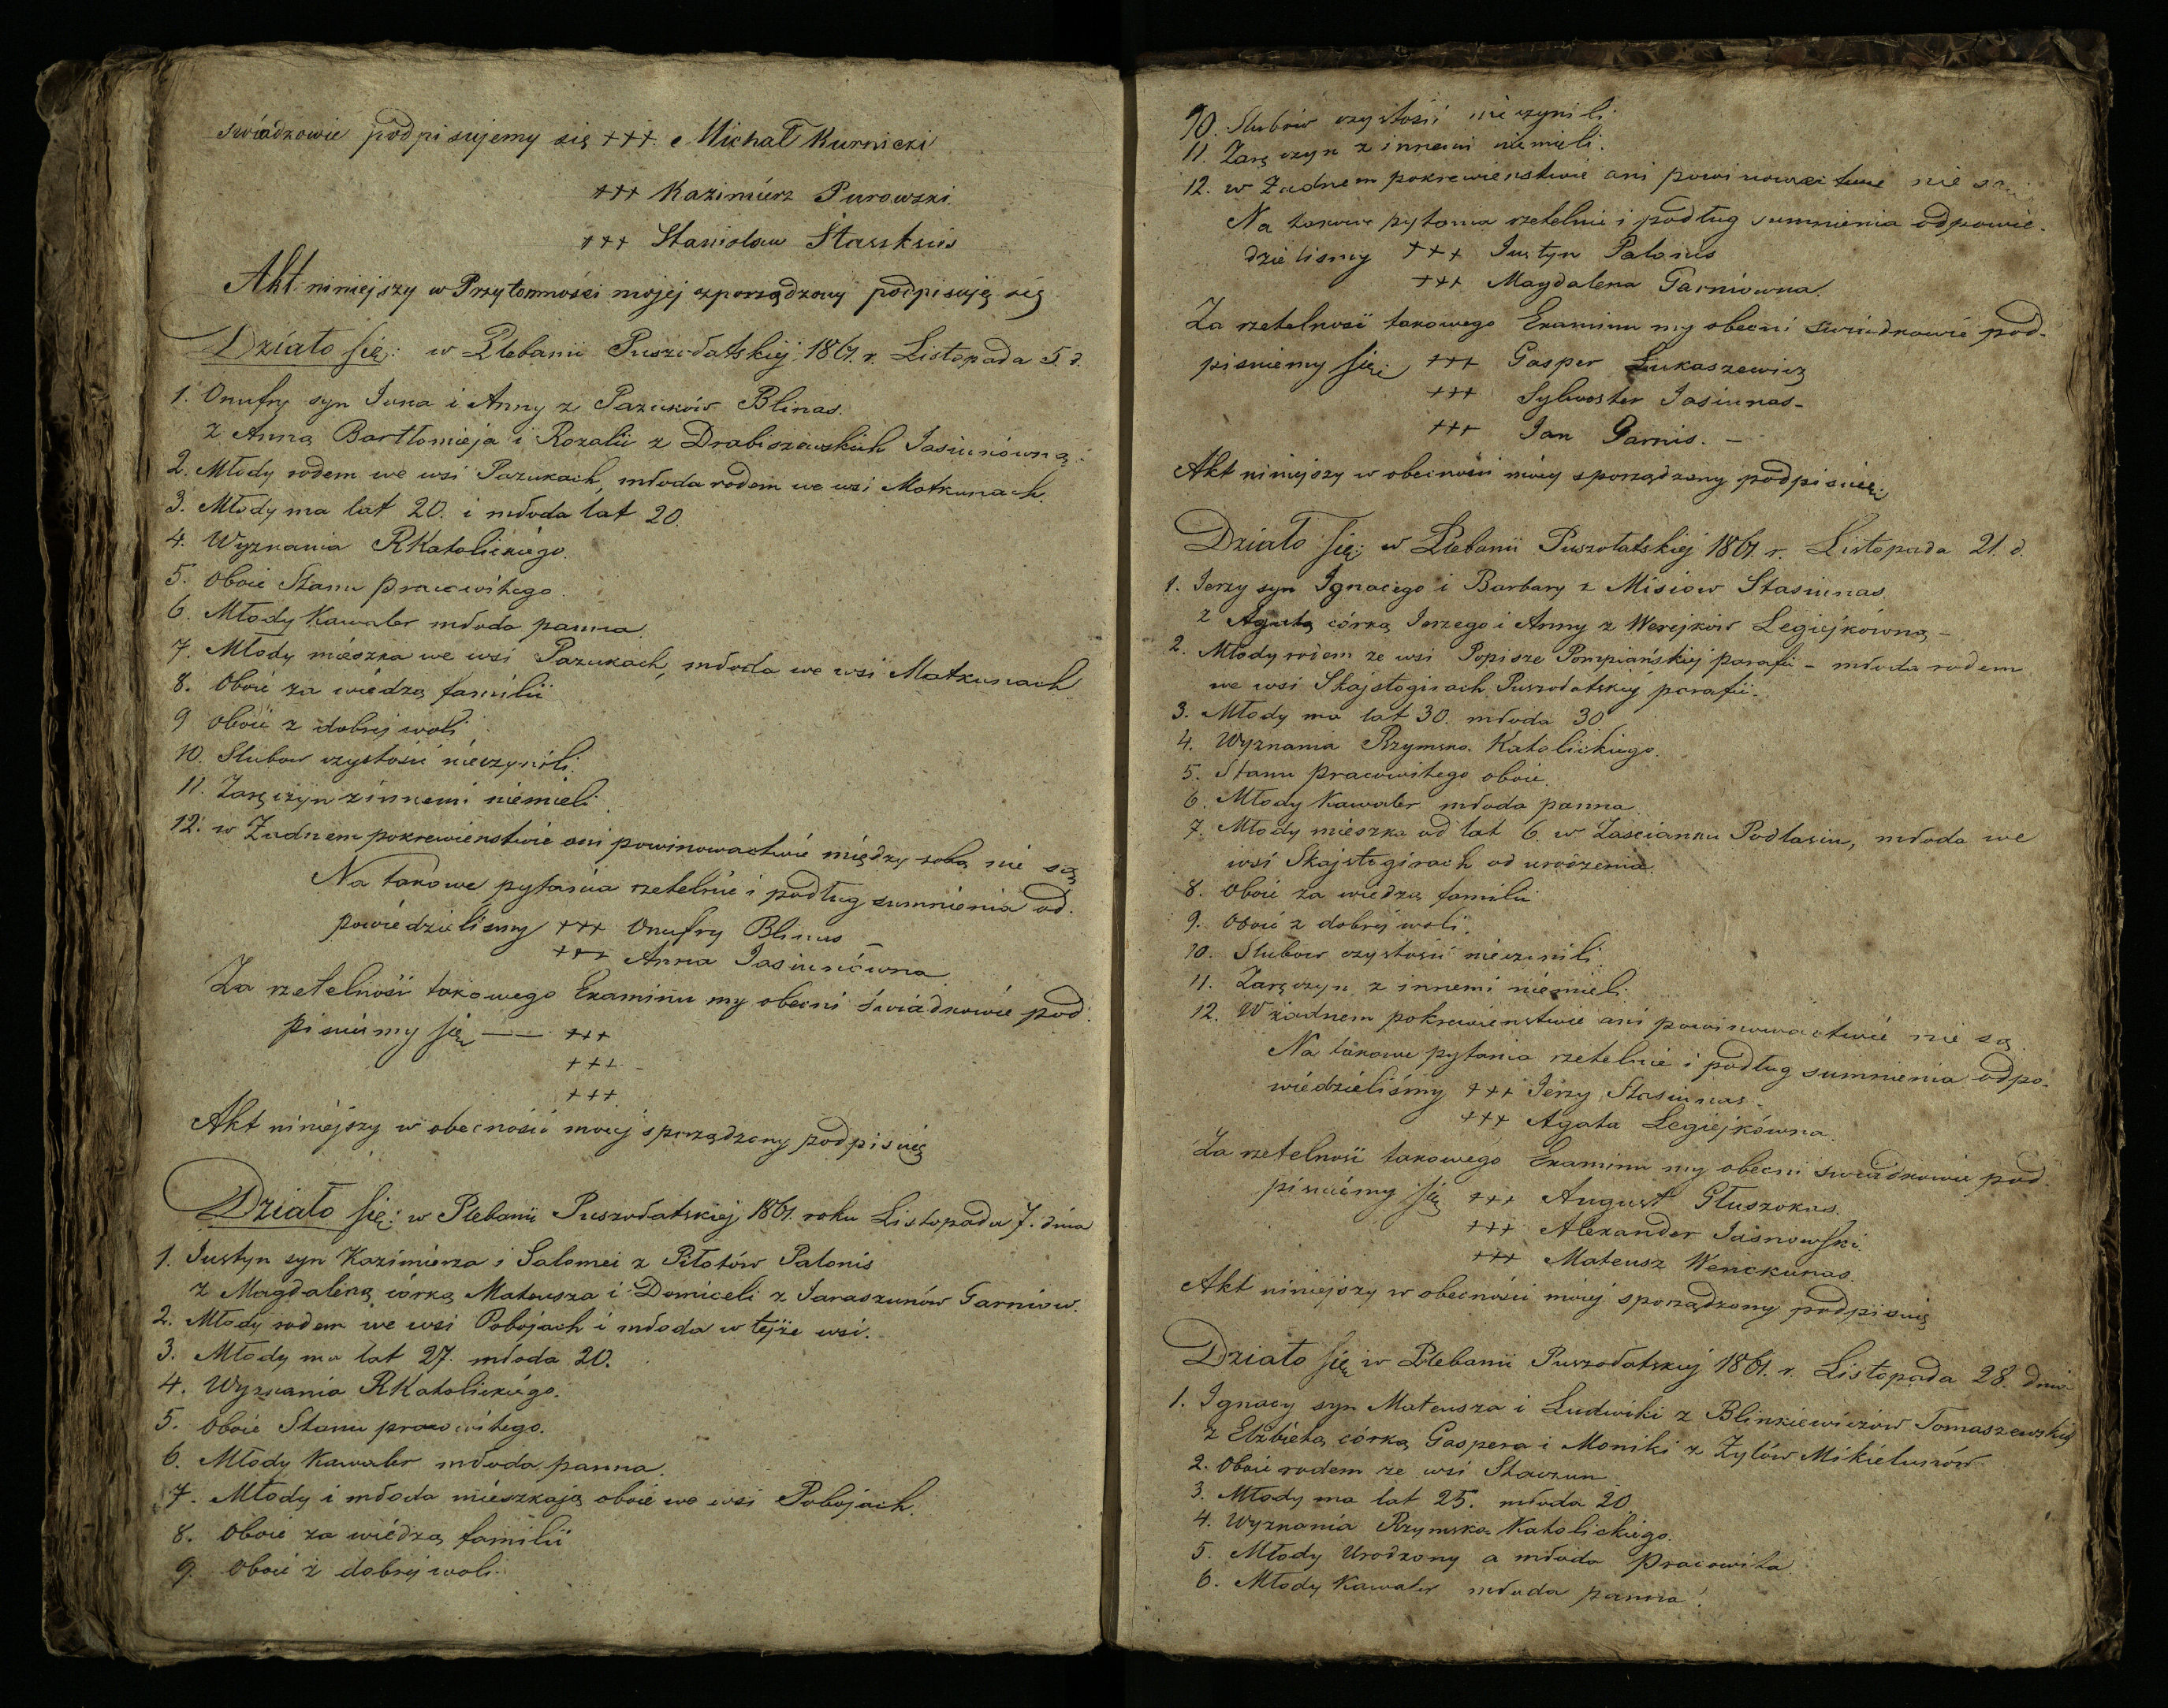 świadkowie podpisujemy się +++ Michał Kurnicki
+++ Kazimierz Purowski
+++ Stanisław Staszkus
Akt niniejszy w Przytomności mojej sporządzony podpisuję się
Działo się: w Plebanii Puszołatskiej 1861. r. Listopada 5. d.
1. Onufry syn Jana i Anny z Pazuków Blinas.
z Anną Bartłomieja i Rozalii z Drabiszewskich Jasiunówną.
2. Młody rodem we wsi Pazukach, młoda rodem we wsi Matkunach.
3. Młody ma lat 20. i młoda lat 20.
4. Wyznania RKatolickiego.
5. Oboie Stanu pracowitego.
6. Młody Kawaler młoda panna.
7. Młody mieszka we wsi Pazukach, młoda we wsi Matkunach
8. Oboie za wiedzą familii
9 Oboie z dobrej woli
10. Slubow czystości nieczynili.
11. Zaręczyn z innemi niemieli
12. w Żadnem pokrewienstwie ani powinowactwie między sobą nie są
Na takowe pytania rzetelnie i podług sumnienia od-
powiedzielismy +++ Onufry Blinas
+++ Anna Jasiunówna
Za rzetelność takowego Examinu my obecni świadkowie pod-
pisuiemy się — +++
+++
+++
Akt niniejszy w obecności moiej sporządzony podpisuię
Działo się: w Plebanii Puszołatskiej 1861. roku Listopada 7. dnia
1. Justyn syn Kazimierza i Salomei z Piłotów Palonis
z Magdaleną córką Mateusza i Domiceli z Jaraszunów Garniow.
2. Młody rodem we wsi Pobojach i młoda w tejże wsi.
3. Młody ma lat 27. młoda 20.
4. Wyznania RKatolickiego.
5. Oboie Stanu pracowitego.
6. Młody Kawaler młoda panna.
7. Młody i młoda mieszkają oboie we wsi Pobojach.
8. Oboie za wiedzą familii
9. Oboie z dobrej woli.
10. Slubów czystości nieczynili.
11. Zaręczyn z innemi niemieli.
12. w Żadnem pokrewienstwie ani powinowactwie nie są
Na takowe pytania rzetelnie i podług sumnienia odpowie-
dzielismy +++ Justyn Palonis
+++ Magdalena Garniowna.
Za rzetelność takowego Examinu my obecni świadkowie pod-
pisuiemy się +++ Gasper Łukaszewicz
+++ Sylwester Jasiunas -
+++ Jan Garnis. -
Akt niniejszy w obecności moiey sporządzony podpisuię
Działo się: w Plebanii Puszołatskiej 1861. r. Listopada 21. d.
1. Jerzy syn Ignacego i Barbary z Misiow Stasiunas.
z Agatą córką Jerzego i Anny z Werejków Legiejkówną -
2. Młody rodem ze wsi Popisze Pompiańskiej parafii - młoda rodem
we wsi Skajstogirach Puszołatskiej parafii.
3. Młody ma lat 30. młoda 30
4. Wyznania Rzymsko Katolickiego.
5. Stanu pracowitego oboie.
6. Młody Kawaler młoda panna
7. Młody mieszka od lat 6. w Zascianku Podlasiu, młoda we
wsi Skajstogirach od urodzenia.
8. Oboie za wiedzą familii
9. Oboie z dobrej woli.
10. Slubow czystości nieczinili
11. Zaręczyn z innemi niemieli
12. W żadnem pokrewienstwie ani powinowactwie nie są.
Na takowe pytania rzetelnie i podług sumnienia odpo-
wiedzieliśmy +++ Jerzy Stasiunas -
+++ Agata Legiejkówna.
Za rzetelność takowego Examinu my obecni swiadkowie pod-
pisuiemy się +++ August Głuszokas.
+++ Alexander Jasnowski.
+++ Mateusz Wenckunas.
Akt niniejszy w obecności moiej sporządzony podpisuię
Działo się w Plebanii Puszołatskiej 1861. r. Listopada 28. dnia
1. Ignacy syn Mateusza i Ludwiki z Blinkiewiczów Tomaszewskich
z Elżbietą córką Gaspera i Moniki z Żyłów Mikielunów
2. Oboie rodem ze wsi Stawzun
3. Młody ma lat 25. młoda 20
4. Wyznania Rzymsko Katolickiego.
5. Młody Urodzony a młoda Pracowita.
6. Młody Kawaler młoda panna.